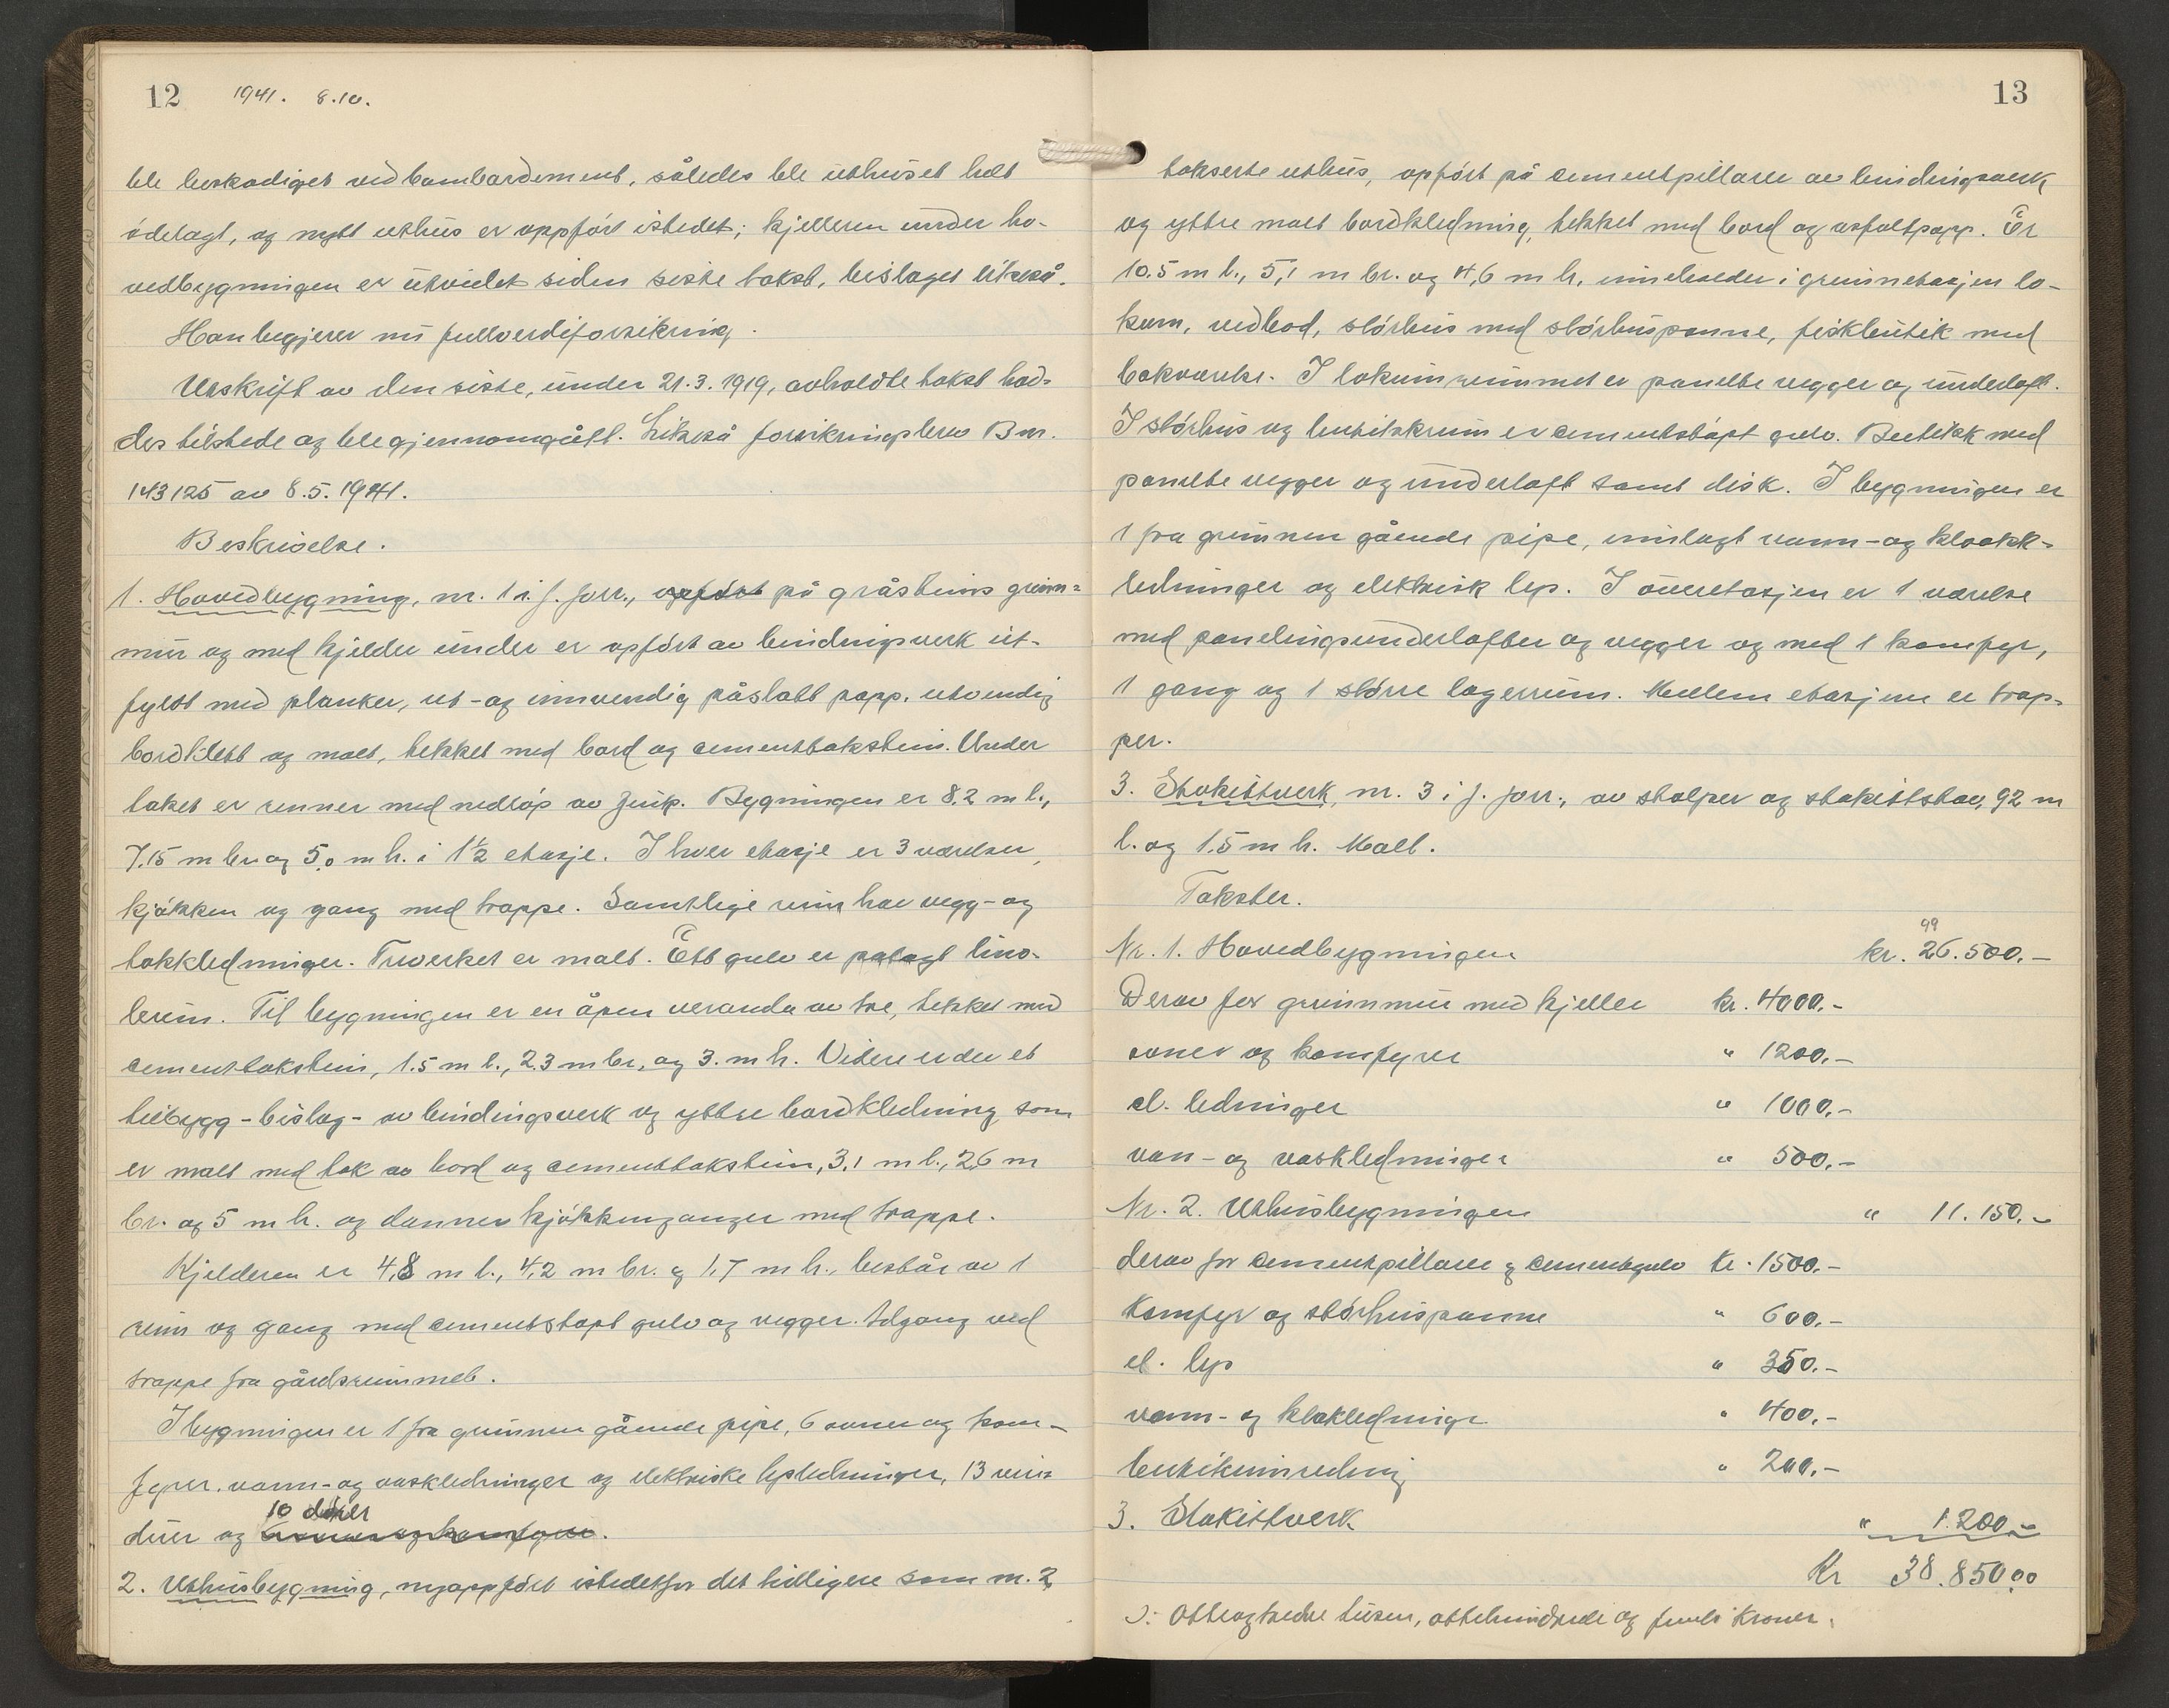 12 1941. 8.10.
ble beskadiget ved bombardement, således ble uthuset helt
ödelagt, og nytt uthus er oppfört istedet; kjelleren under ho-
vedbygningen er utvidet siden siste takst, bislaget likeså.
Han begjerer nu fullverdiforsikring.
Utskrift av den siste, under 21.3.1919, avholdte takst had-
des tilstede og ble gjennomgått. Likeså forsikringsbrev Bnr.
143125 av 8.5.1941.
Beskrivelse.
1. Hovedbygning, nr. 1 i f. forr., oppfört på gråsteins grunn-
mur og med kjelder under er opfört av bindingsverk ut-
fylt med planker, ut- og innvendig påslått papp, utvendig
bordkledt og malt, tekket med bord og cementtakstein. Under
taket er renner med nedlöp av zink. Bygningen er 8,2 m l.,
7,15 m br. og 5,0 m h. i 1½ etasje. I hver etasje er 3 værelser,
kjökken og gang med trappe. Samtlige rum har vegg- og
takkledninger. Treverket er malt. Ett gulv er pålagt lino-
leum. Til bygningen er en åpen veranda av tre, tekket med
cementtakstein, 1.5 m l., 2,3 m br. og 3. m h. Videre er der et
tilbygg - bislag - av bindingsverk og yttre bordkledning som
er malt med tak av bord og cementtakstein, 3,1 m l., 2,6 m
br. og 5 m h. og danner kjökkenganger med trappe.
Kjelderen er 4,8 m l., 4,2 m br. og 1,7 m h., består av 1
rum og gang med cementstöpt gulv og vegger. Adgang ved
trappe fra gårdsrummet.
I bygningen er 1 fra grunnen gående pipe, 6 ovner og kom-
fyrer, vann- og vaskledninger og elektriske lysledninger, 13 vin-
duer og 10 dörer 6 ovner og komfyrer.
2. Uthusbygning, nyoppfört istedetfor det tidligere som nr. 2
13
takserte uthus, oppfört på cementpillarer av bindingsverk
og yttre malt bordkledning, tekket med bord og asfaltpapp. Er
10.5 m l., 5,1 m br. og 4,6 m h., inneholder i grunnetasjen lo-
kum, vedbod, störhus med störhuspanne, fiskbutik med
bakværelse. I lokumrummet er panelte vegger og underloft.
I störhus og butikkrum er cementstöpt gulv. Butikk med
panelte vegger og underloft samt disk. I bygningen er
1 fra grunnen gående pipe, innlagt vann- og kloakk-
ledninger og elektrisk lys. I överetasjen er 1 værelse
med panelingsunderlofter og vegger og med 1 komfyr,
1 gang og 1 större lagerrum. Mellem etasjene er trap-
per.
3. Stakittverk, nr. 3 i f. forr., av stolper og stakittstav, 92 m
l. og 1.5 m h. Malt.
Takster.
Nr. 1. Hovedbygningen kr. 26.500.-
Derav for grunnmur med kjeller kr. 4000.-
ovner og komfyrer " 1200.-
el. ledninger " 1000.-
van- og vaskledninger " 500.-
Nr. 2. Uthusbygningen " 11.150.-
derav for cementpillarer og cementgulv kr. 1500.-
Komfyr og störhuspanne " 600.-
el. lys " 350.-
vann- og kloakledninger " 400.-
butikinnredning " 200.-
3. Stakittverk " 1.200.-
Kr 38.850.00
ɔ: Otteogtredve tusen, ottehundrede og femti Kroner.